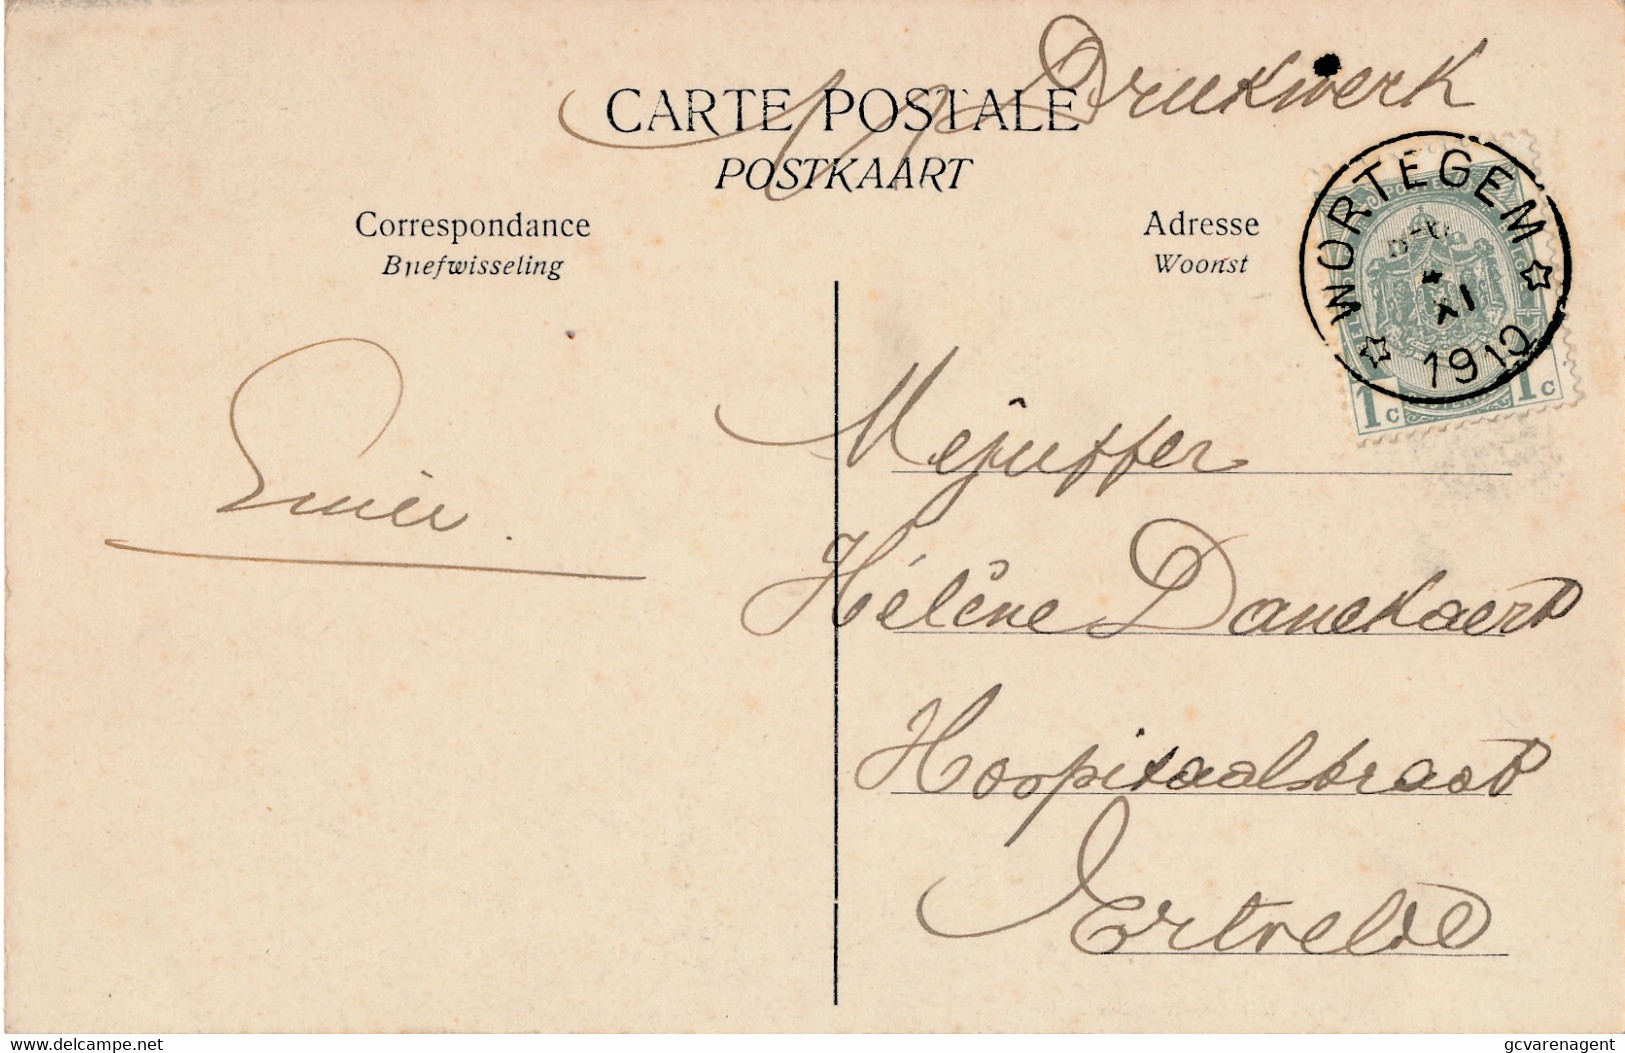 Drukwerk
CARTE POSTALE
POSTKAART
Correspondance
Briefwisseling
Adresse
Woonst
WORTEGEM
XI
1912
1c 1c
Mejuffer
Hélène Danckaert
Hospitaalstraat
Ertvelde
delcampe.net
gcvarenagent